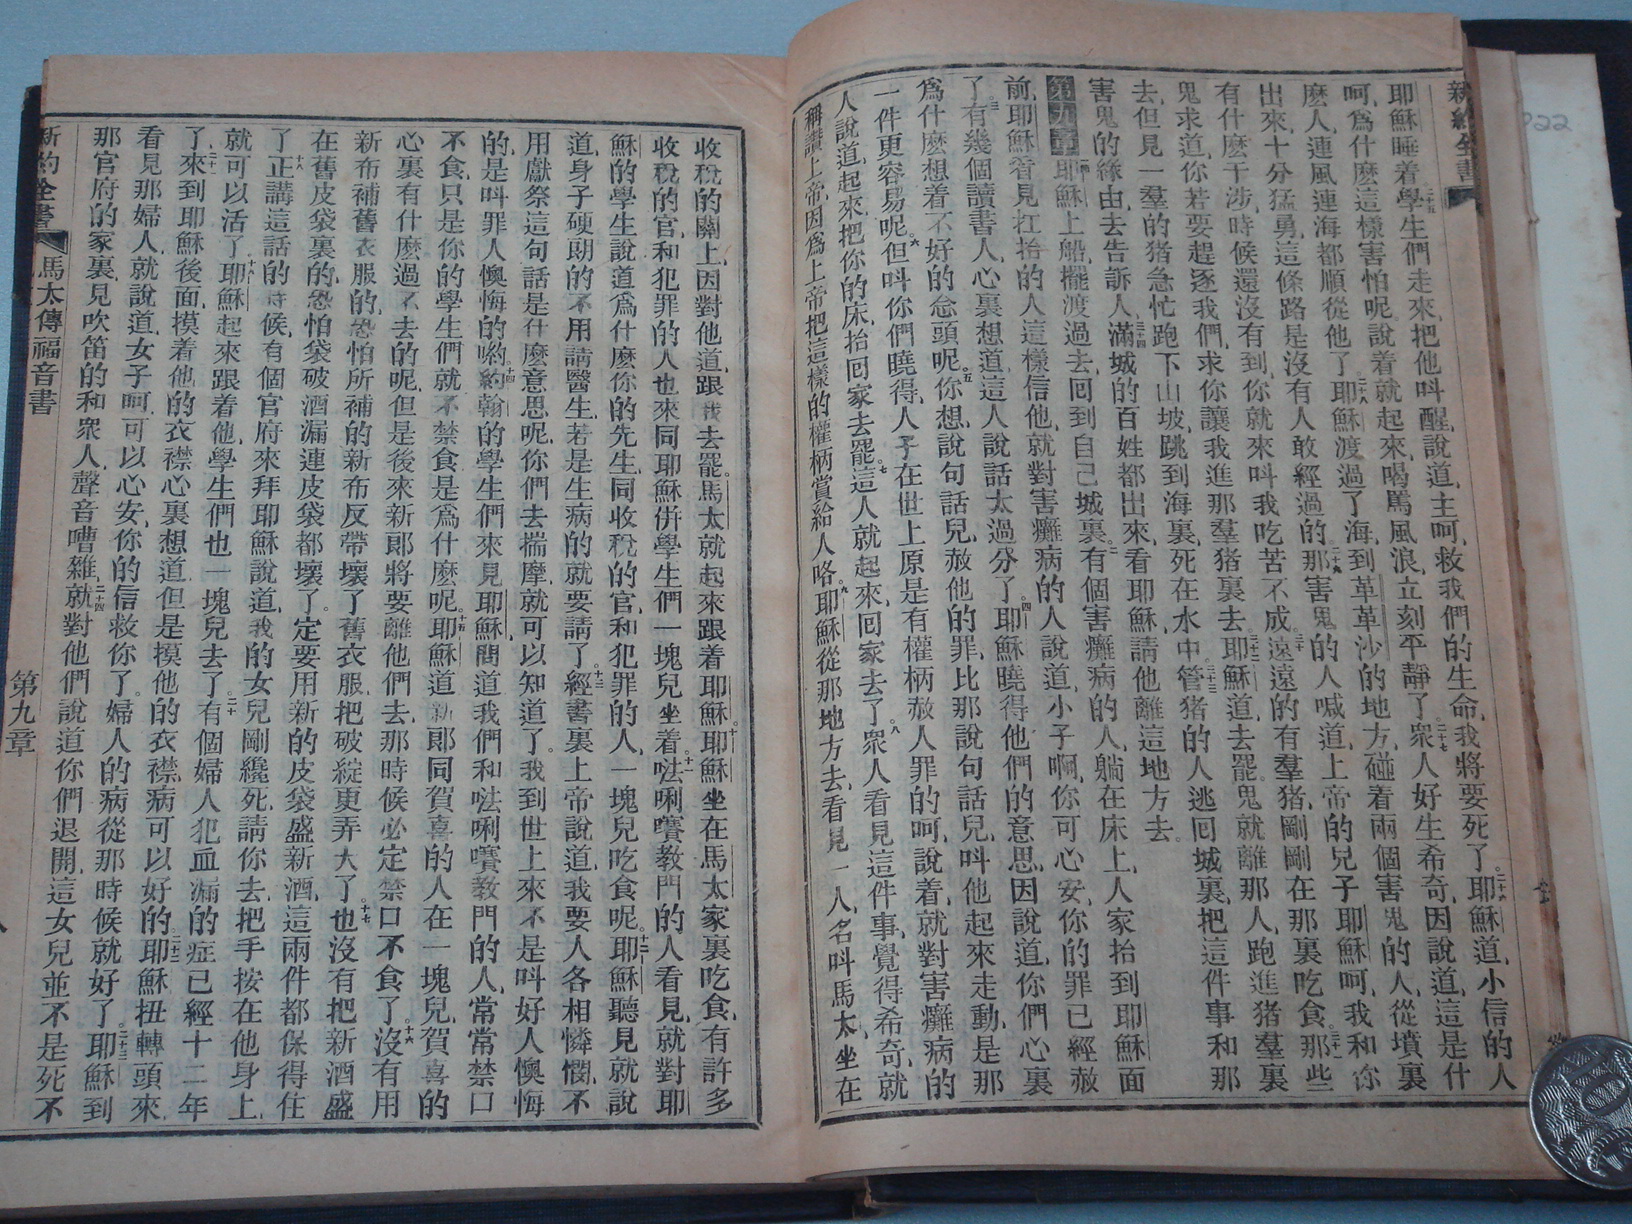 新約全書
耶穌睡着學生們走來把他呌醒說道主呵救我們的生命我將要死了二十六耶穌道小信的人
呵爲什麽這樣害怕呢說着就起來喝罵風浪立刻平靜了二十七衆人好生希奇因說道這是什
麽人連風連海都順從他了二十八耶穌渡過了海到革革沙的地方碰着兩個害鬼的人從墳裏
出來十分猛勇這條路是沒有人敢經過的二十九那害鬼的人喊道上帝的兒子耶穌呵我和你
有什麽干涉時候還沒有到你就來呌我吃苦不成三十遠遠的有羣猪剛剛在那裏吃食三十一那些
鬼求道你若要趕逐我們求你讓我進那羣猪裏去三十二耶穌道去罷鬼就離那人跑進猪羣裏
去但見一羣的猪急忙跑下山坡跳到海裏死在水中三十三管猪的人逃囘城裏把這件事和那
害鬼的緣由去告訴人三十四滿城的百姓都出來看耶穌請他離這地方去
第九章耶穌上船擺渡過去囘到自己城裏二有個害癱病的人躺在床上人家抬到耶穌面
前耶穌看見扛抬的人這樣信他就對害癱病的人說道小子啊你可心安你的罪已經赦
了三有幾個讀書人心裏想道這人說話太過分了四耶穌曉得他們的意思因說道你們心裏
爲什麽想着不好的念頭呢五你想說句話兒赦他的罪比那說句話兒呌他起來走動是那
一件更容易呢六但呌你們曉得人子在世上原是有權柄赦人罪的呵說着就對害癱病的
人說道起來把你的床抬囘家去罷七這人就起來囘家去了八衆人看見這件事覺得希奇就
稱讚上帝因爲上帝把這樣的權柄賞給人咯九耶穌從那地方去看見一人名呌馬太坐在
收稅的關上因對他道跟我去罷馬太就起來跟着耶穌十耶穌坐在馬太家裏吃食有許多
收稅的官和犯罪的人也來同耶穌併學生們一塊兒坐着十一𠵽唎㘔教門的人看見就對耶
穌的學生說道爲什麽你的先生同收稅的官和犯罪的人一塊兒吃食呢十二耶穌聽見就說
道身子硬朗的不用請醫生若是生病的就要請了十三經書裏上帝說道我要人各相憐憫不
用獻祭這句話是什麽意思呢你們去揣摩就可以知道了我到世上來不是呌好人懊悔
的是呌罪人懊悔的喲十四約翰的學生們來見耶穌問道我們和𠵽唎㘔教門的人常常禁口
不食只是你的學生們就不禁食是爲什麽呢十五耶穌道新郎同賀喜的人在一塊兒賀喜的
心裏有什麽過不去的呢但是後來新郎將要離他們去那時候必定禁口不食了十六沒有用
新布補舊衣服的恐怕所補的新布反帶壞了舊衣服把破綻更弄大了十七也沒有把新酒盛
在舊皮袋裏的恐怕袋破酒漏連皮袋都壞了定要用新的皮袋盛新酒這兩件都保得住
了十八正講這話的時候有個官府來拜耶穌說道我的女兒剛纔死請你去把手按在他身上
就可以活了十九耶穌起來跟着他學生們也一塊兒去了二十有個婦人犯血漏的症已經十二年
了二十一來到耶穌後面摸着他的衣襟心裏想道但是摸他的衣襟病可以好的二十二耶穌扭轉頭來
看見那婦人就說道女子呵可以心安你的信救你了婦人的病從那時候就好了二十三耶穌到
那官府的家裏見吹笛的和衆人聲音嘈雜二十四就對他們說道你們退開這女兒並不是死不
新約全書 馬太傳福音書 第九章 八